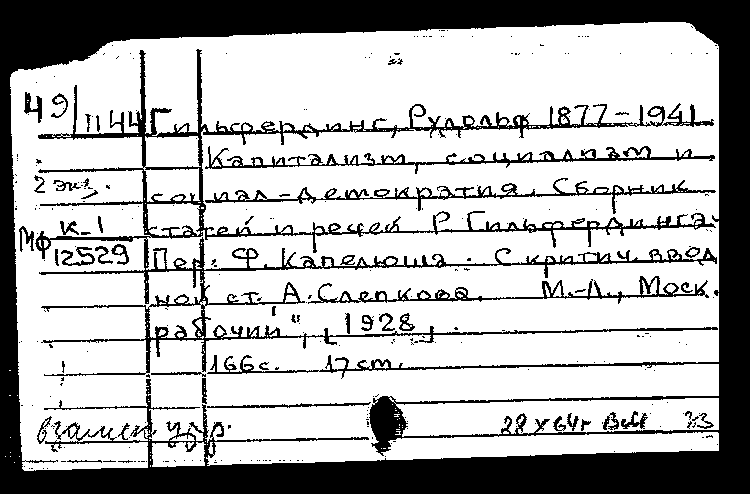 49/1144 Гильфердинг, Рудольф 1877-1941
Капитализм, социализм и
2 экз. социал-демократия. Сборник
статей и речей Р. Гильфердинга.
Мф К-1
12529
Пер. Ф. Капелюша. С критич. ввод
ной ст. А. Слепкова. М.-Л., „Моск.
рабочий", [1928].
166 с. 17 cm.
взамен утр. 28 X 64г